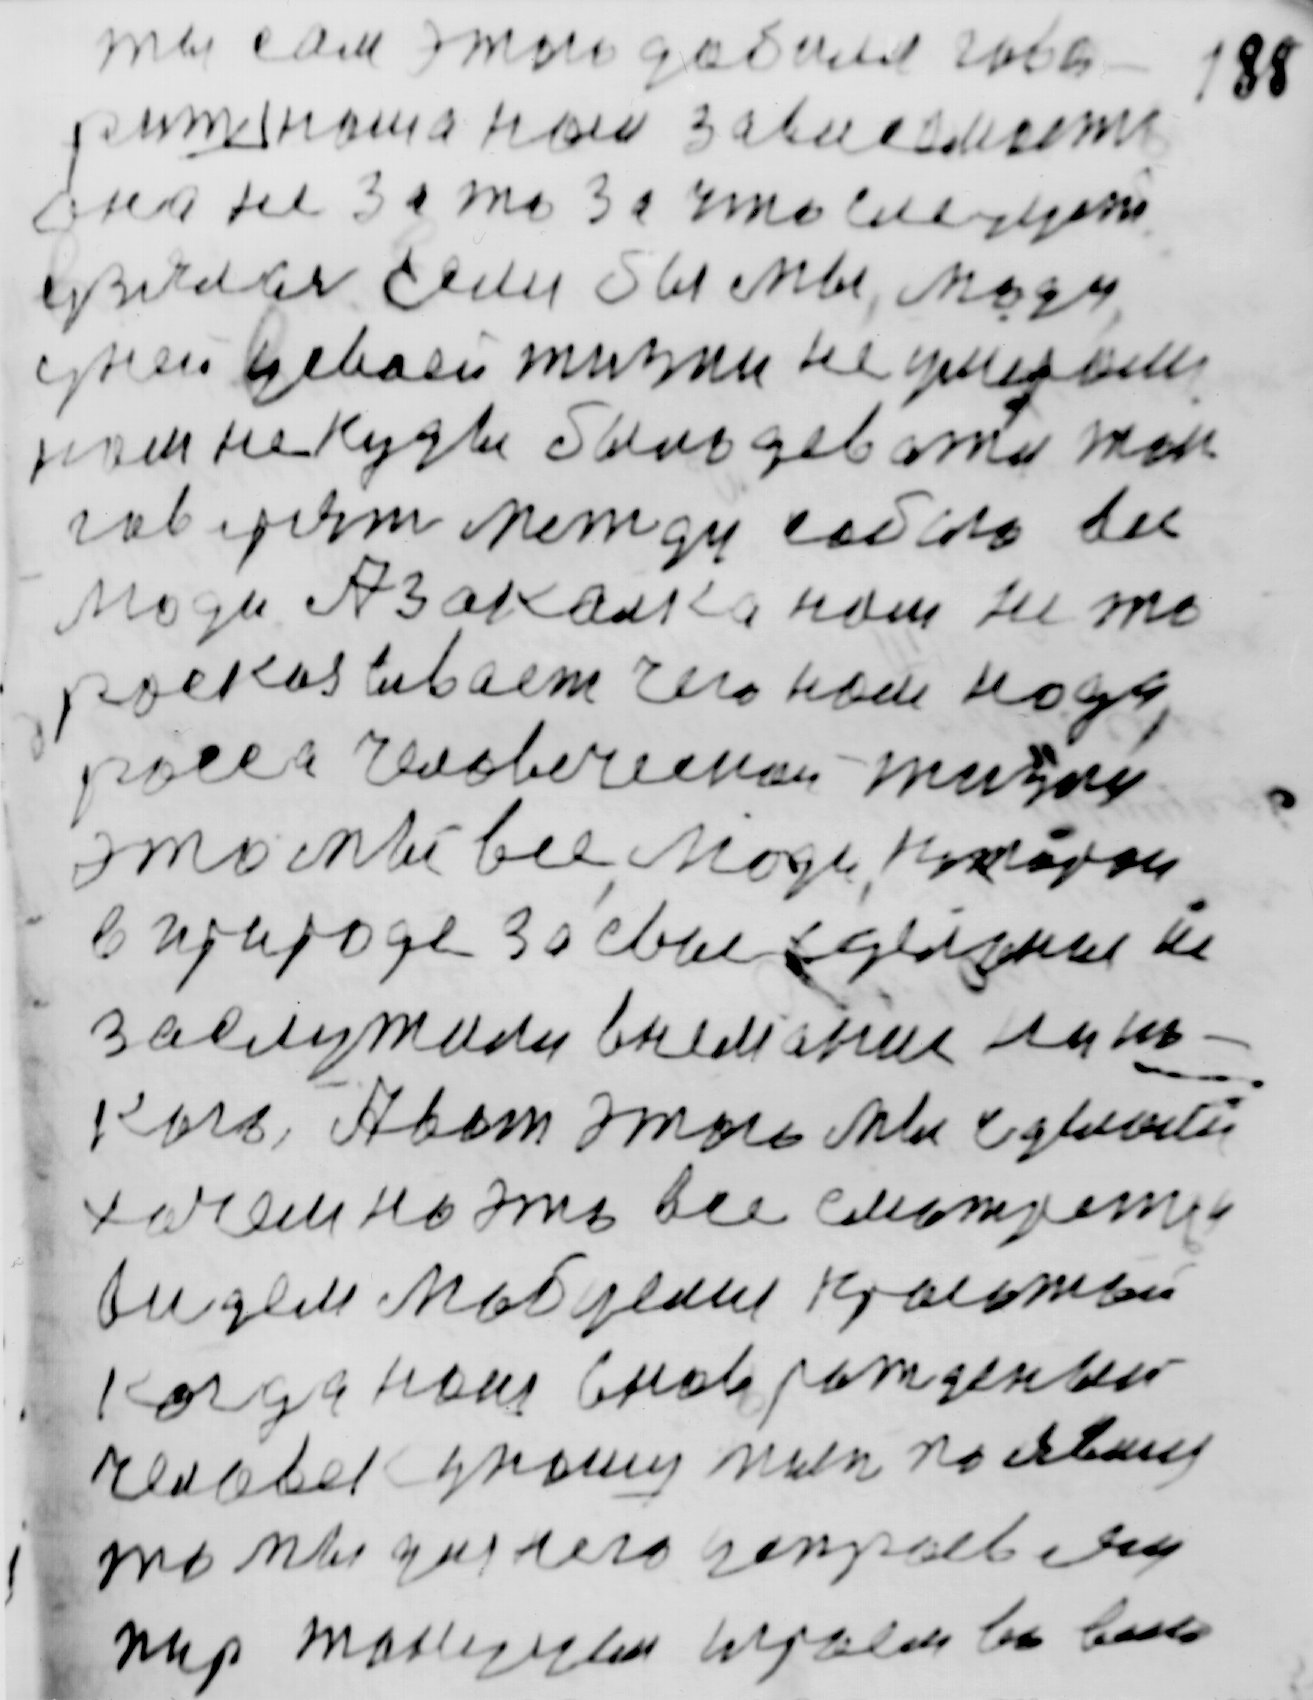 188
ты сам этого добился гово-
рить наша нам зависимость
она не за то за что следует
взялась Если бы мы, люди
у ней у своей жизни не умирали
нам некуды было деваться так
говорят между собою все
люди А закалка нам не то
росказывает чего нам надо
росса человеческая жизня
это мы все люди, которые
в природе за свое сделание не
заслужили внемание ника-
кого, А вот этого мы сделать
хочем на это все смотреть и
видем любуемся красотой
когда нам вновь рожденный
человек у нашу жизнь появится
то мы для него устраеваем
пир танцуем играем во всю